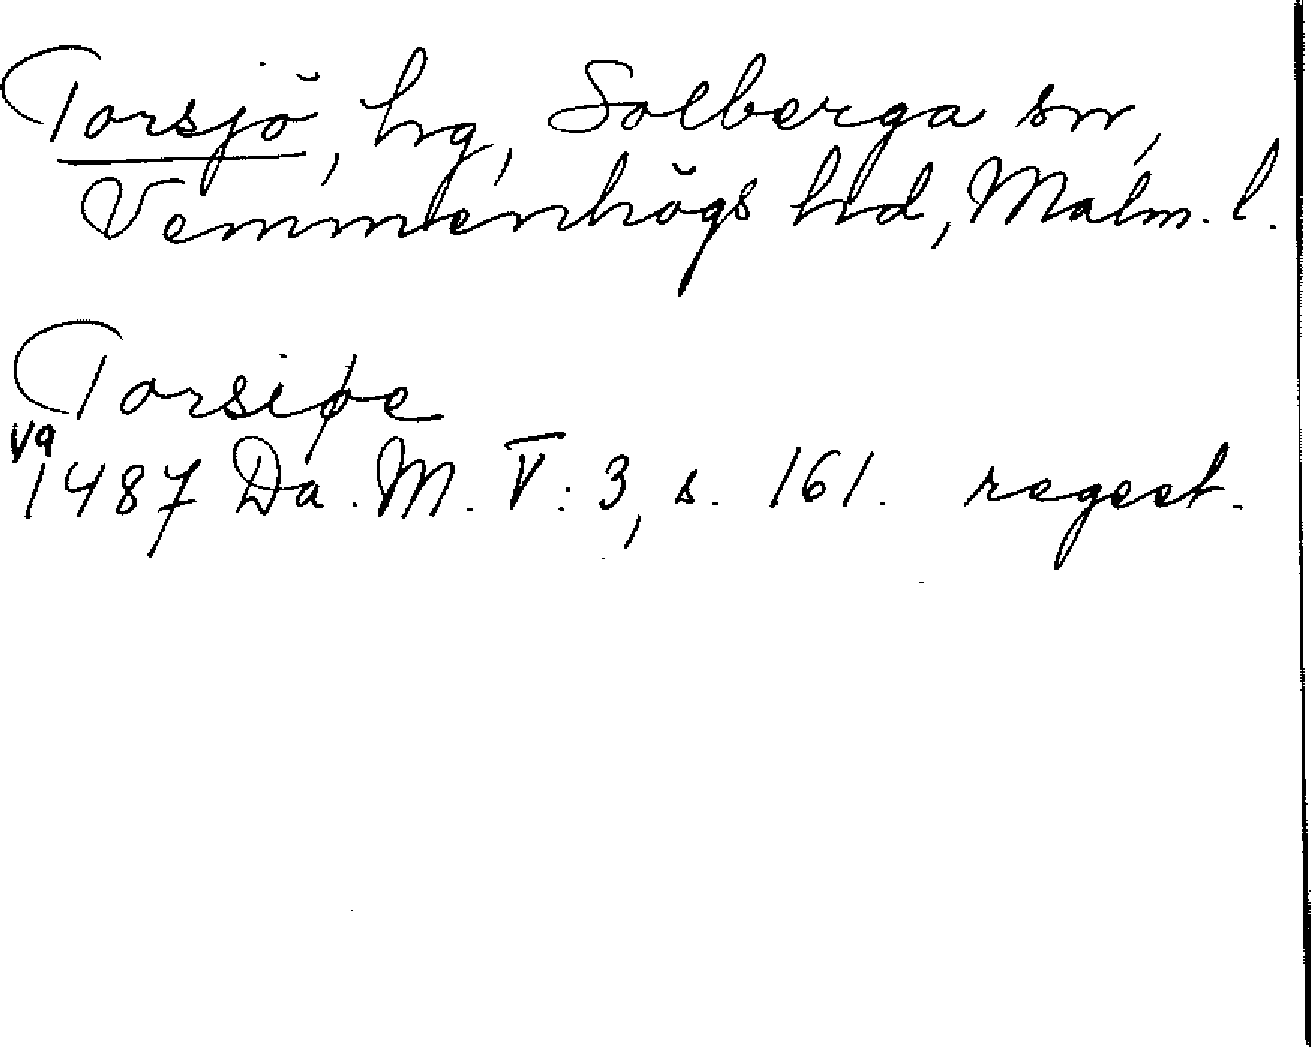 Torsjö, hg, Solberga sn,
Vemmenhögs hd, Malm. l.
Torsiøe
1/9
1487 Da. M. V: 3, s. 161. regest.